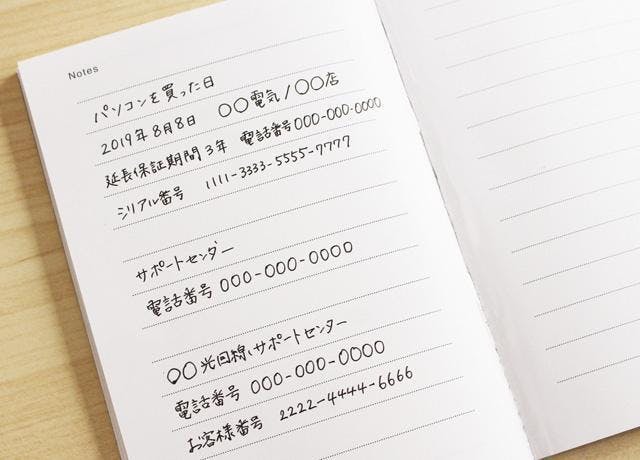 Notes
パソコンを買った日
2019年8月8日 〇〇電気/〇〇店
延長保証期間3年 電話番号000-000-0000
シリアル番号 1111-3333-5555-7777
サポートセンター
電話番号 000-000-0000
〇〇光回線サポートセンター
電話番号 000-000-0000
お客様番号 2222-4444-6666